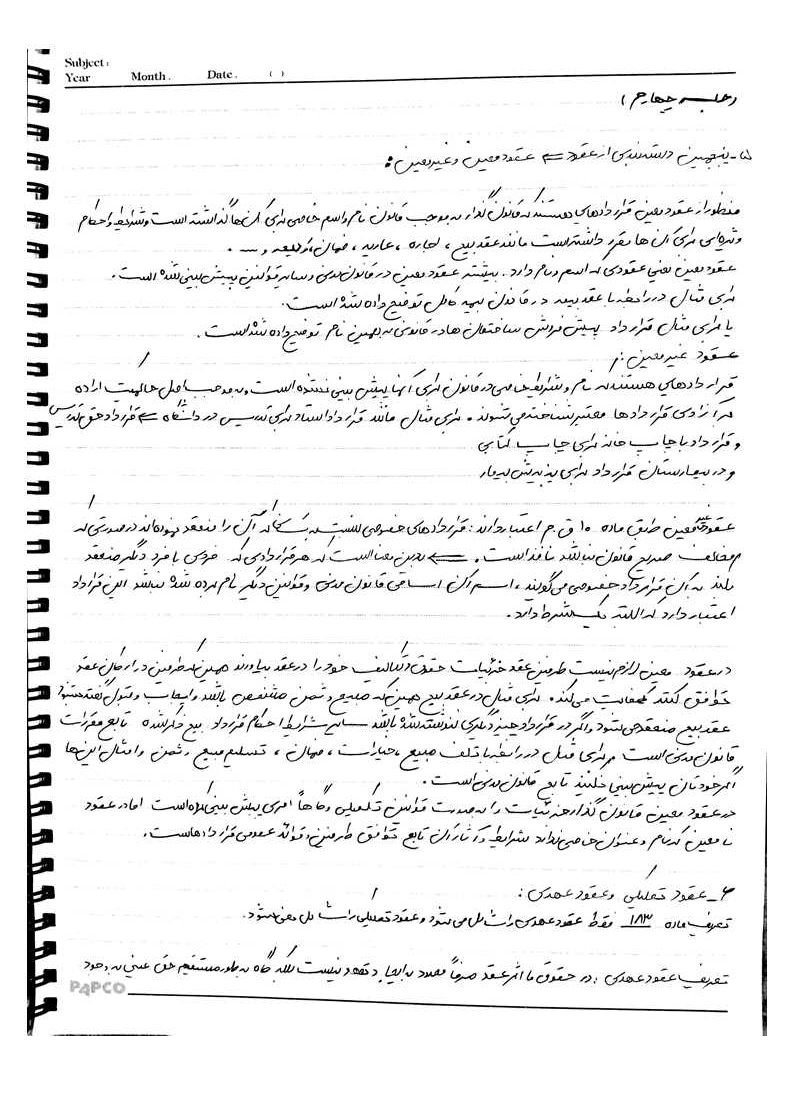 Subject:
Year Month. Date. ( )
جلسه چهارم)
۵- پنجمین دسته بندی از عقود ⇐ عقود معین و غیر معین:
منظور از عقود معین قراردادهایی هستند که قانون گذار به موجب قانون نام و اسم خاصی برای آن ها گذاشته است و شرایط و احکام
ویژه ای برای آن ها مقرر داشته است مانند عقد بیع، اجاره، عاریه، ضمان، ودیعه و ... .
عقود معین یعنی عقودی که اسم و نام دارد. بیشتر عقود معین در قانون مدنی و سایر قوانین پیش بینی شده است.
برای مثال در رابطه با عقد بیمه در قانون بیمه کامل توضیح داده شده است.
یا برای مثال قرارداد پیش فروش ساختمان ها در قانونی به همین نام توضیح داده شده است.
عقود غیر معین:
قراردادهایی هستند که نام و شرایط خاصی در قانون برای آنها پیش بینی نشده است و به موجب اصل حاکمیت اراده
و آزادی قراردادها معتبر شناخته می شوند. برای مثال مانند قرارداد استاد برای تدریس در دانشگاه ⇐ قرارداد حق تدریس
و قرارداد با چاپ خانه برای چاپ کتابی
و در بیمارستان قرارداد برای پذیرش بیمار
عقود غیر معین طبق ماده ۱۰ ق.م اعتبار دارند: قراردادهای خصوصی نسبت به کسانی که آن را منعقد نموده اند در صورتی که
مخالف صریح قانون نباشد نافذ است. ⇐ بدین معنا است که هر قراردادی که فردی با فرد دیگر منعقد
کند به آن قرارداد خصوصی می گویند، اسم آن اسامی قانون مدنی و قوانین دیگر نام برده شده نباشد این قرارداد
اعتبار دارد که البته یک شرط دارد.
در عقود معین لازم نیست طرفین عقد جزئیات حقوق و تکالیف خود را در عقد بیاورند همین که طرفین در ارکان عقد
توافق کنند کفایت می کند. برای مثال در عقد بیع همین که مبیع و ثمن مشخص باشد و ایجاب و قبول گفته شود
عقد بیع منعقد می شود و اگر در قرارداد چیز دیگری نوشته نشده باشد سایر شرایط احکام قرارداد بیع ذکر نشده تابع مقررات
قانون مدنی است برای مثال در رابطه با تلف مبیع، خیارات، ضمان، تسلیم مبیع و ثمن و امثال این ها
اگر خودتان پیش بینی نکنید تابع قانون مدنی است.
در عقود معین قانون گذار جزئیات را به صورت قوانین تکمیلی و گاهاً امری پیش بینی کرده است اما در عقود
نامعین که نام و عنوان خاصی ندارد شرایط و آثار آن تابع توافق طرفین و قواعد عمومی قراردادهاست.
۶- عقود تملیکی و عقود عهدی:
تعریف ماده ۱۸۳ فقط عقود عهدی را شامل می شود و عقود تملیکی را شامل نمی شود.
تعریف عقود عهدی: در حقوق ما اثر عقد صرفاً محدود به ایجاد تعهد نیست بلکه گاه به طور مستقیم حق عینی به وجود
PAPCO